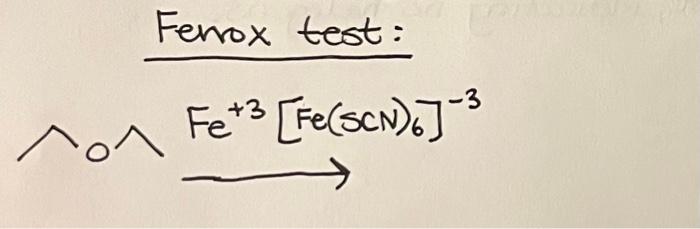 Ferrox test:
Fe⁺³ [Fe(SCN)₆]⁻³
O